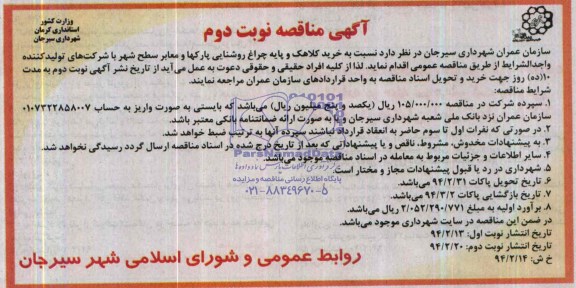 وزارت کشور
استانداری کرمان
شهرداری سیرجان
آگهی مناقصه نوبت دوم
سازمان عمران شهرداری سیرجان در نظر دارد نسبت به خرید کلاهک و پایه چراغ روشنایی پارکها و معابر سطح شهر با شرکت‌های تولیدکننده
واجدالشرایط از طریق مناقصه عمومی اقدام نماید. لذا از کلیه افراد حقیقی و حقوقی دعوت به عمل می‌آید از تاریخ نشر آگهی نوبت دوم به مدت
۱۰(ده) روز جهت خرید و تحویل اسناد مناقصه به واحد قراردادهای سازمان عمران مراجعه نمایند.
شرایط مناقصه:
۱. سپرده شرکت در مناقصه ۱۰۵/۰۰۰/۰۰۰ ریال (یکصد و پنج میلیون ریال) می‌باشد که بایستی به صورت واریز به حساب ۰۱۰۷۳۲۲۸۵۸۰۰۷
سازمان عمران نزد بانک ملی شعبه شهرداری سیرجان و یا به صورت ارائه ضمانتنامه بانکی معتبر باشد.
۲. در صورتی که نفرات اول تا سوم حاضر به انعقاد قرارداد نباشند سپرده آنها به ترتیب ضبط خواهد شد.
۳. به پیشنهادات مخدوش، مشروط، ناقص و یا پیشنهاداتی که بعد از تاریخ درج شده در اسناد مناقصه ارسال گردد رسیدگی نخواهد شد.
۴. سایر اطلاعات و جزئیات مربوط به معامله در اسناد مناقصه موجود می‌باشد.
۵. شهرداری در رد یا قبول پیشنهادات مجاز و مختار است.
۶. تاریخ تحویل پاکات ۹۴/۲/۳۱ می‌باشد.
۷. تاریخ بازگشایی پاکات ۹۴/۳/۲ می‌باشد.
۸. برآورد اولیه به مبلغ ۲/۰۵۲/۲۹۰/۷۷۱ ریال می‌باشد.
در ضمن این مناقصه در سایت شهرداری موجود می‌باشد.
تاریخ انتشار نوبت اول: ۹۴/۲/۱۳
تاریخ انتشار نوبت دوم: ۹۴/۲/۲۰
خ ش: ۹۴/۲/۱۴
روابط عمومی و شورای اسلامی شهر سیرجان
ParsNamadData
پایگاه اطلاع رسانی مناقصه و مزایده
۰۲۱-۸۸۳۴۹۶۷۰-۵